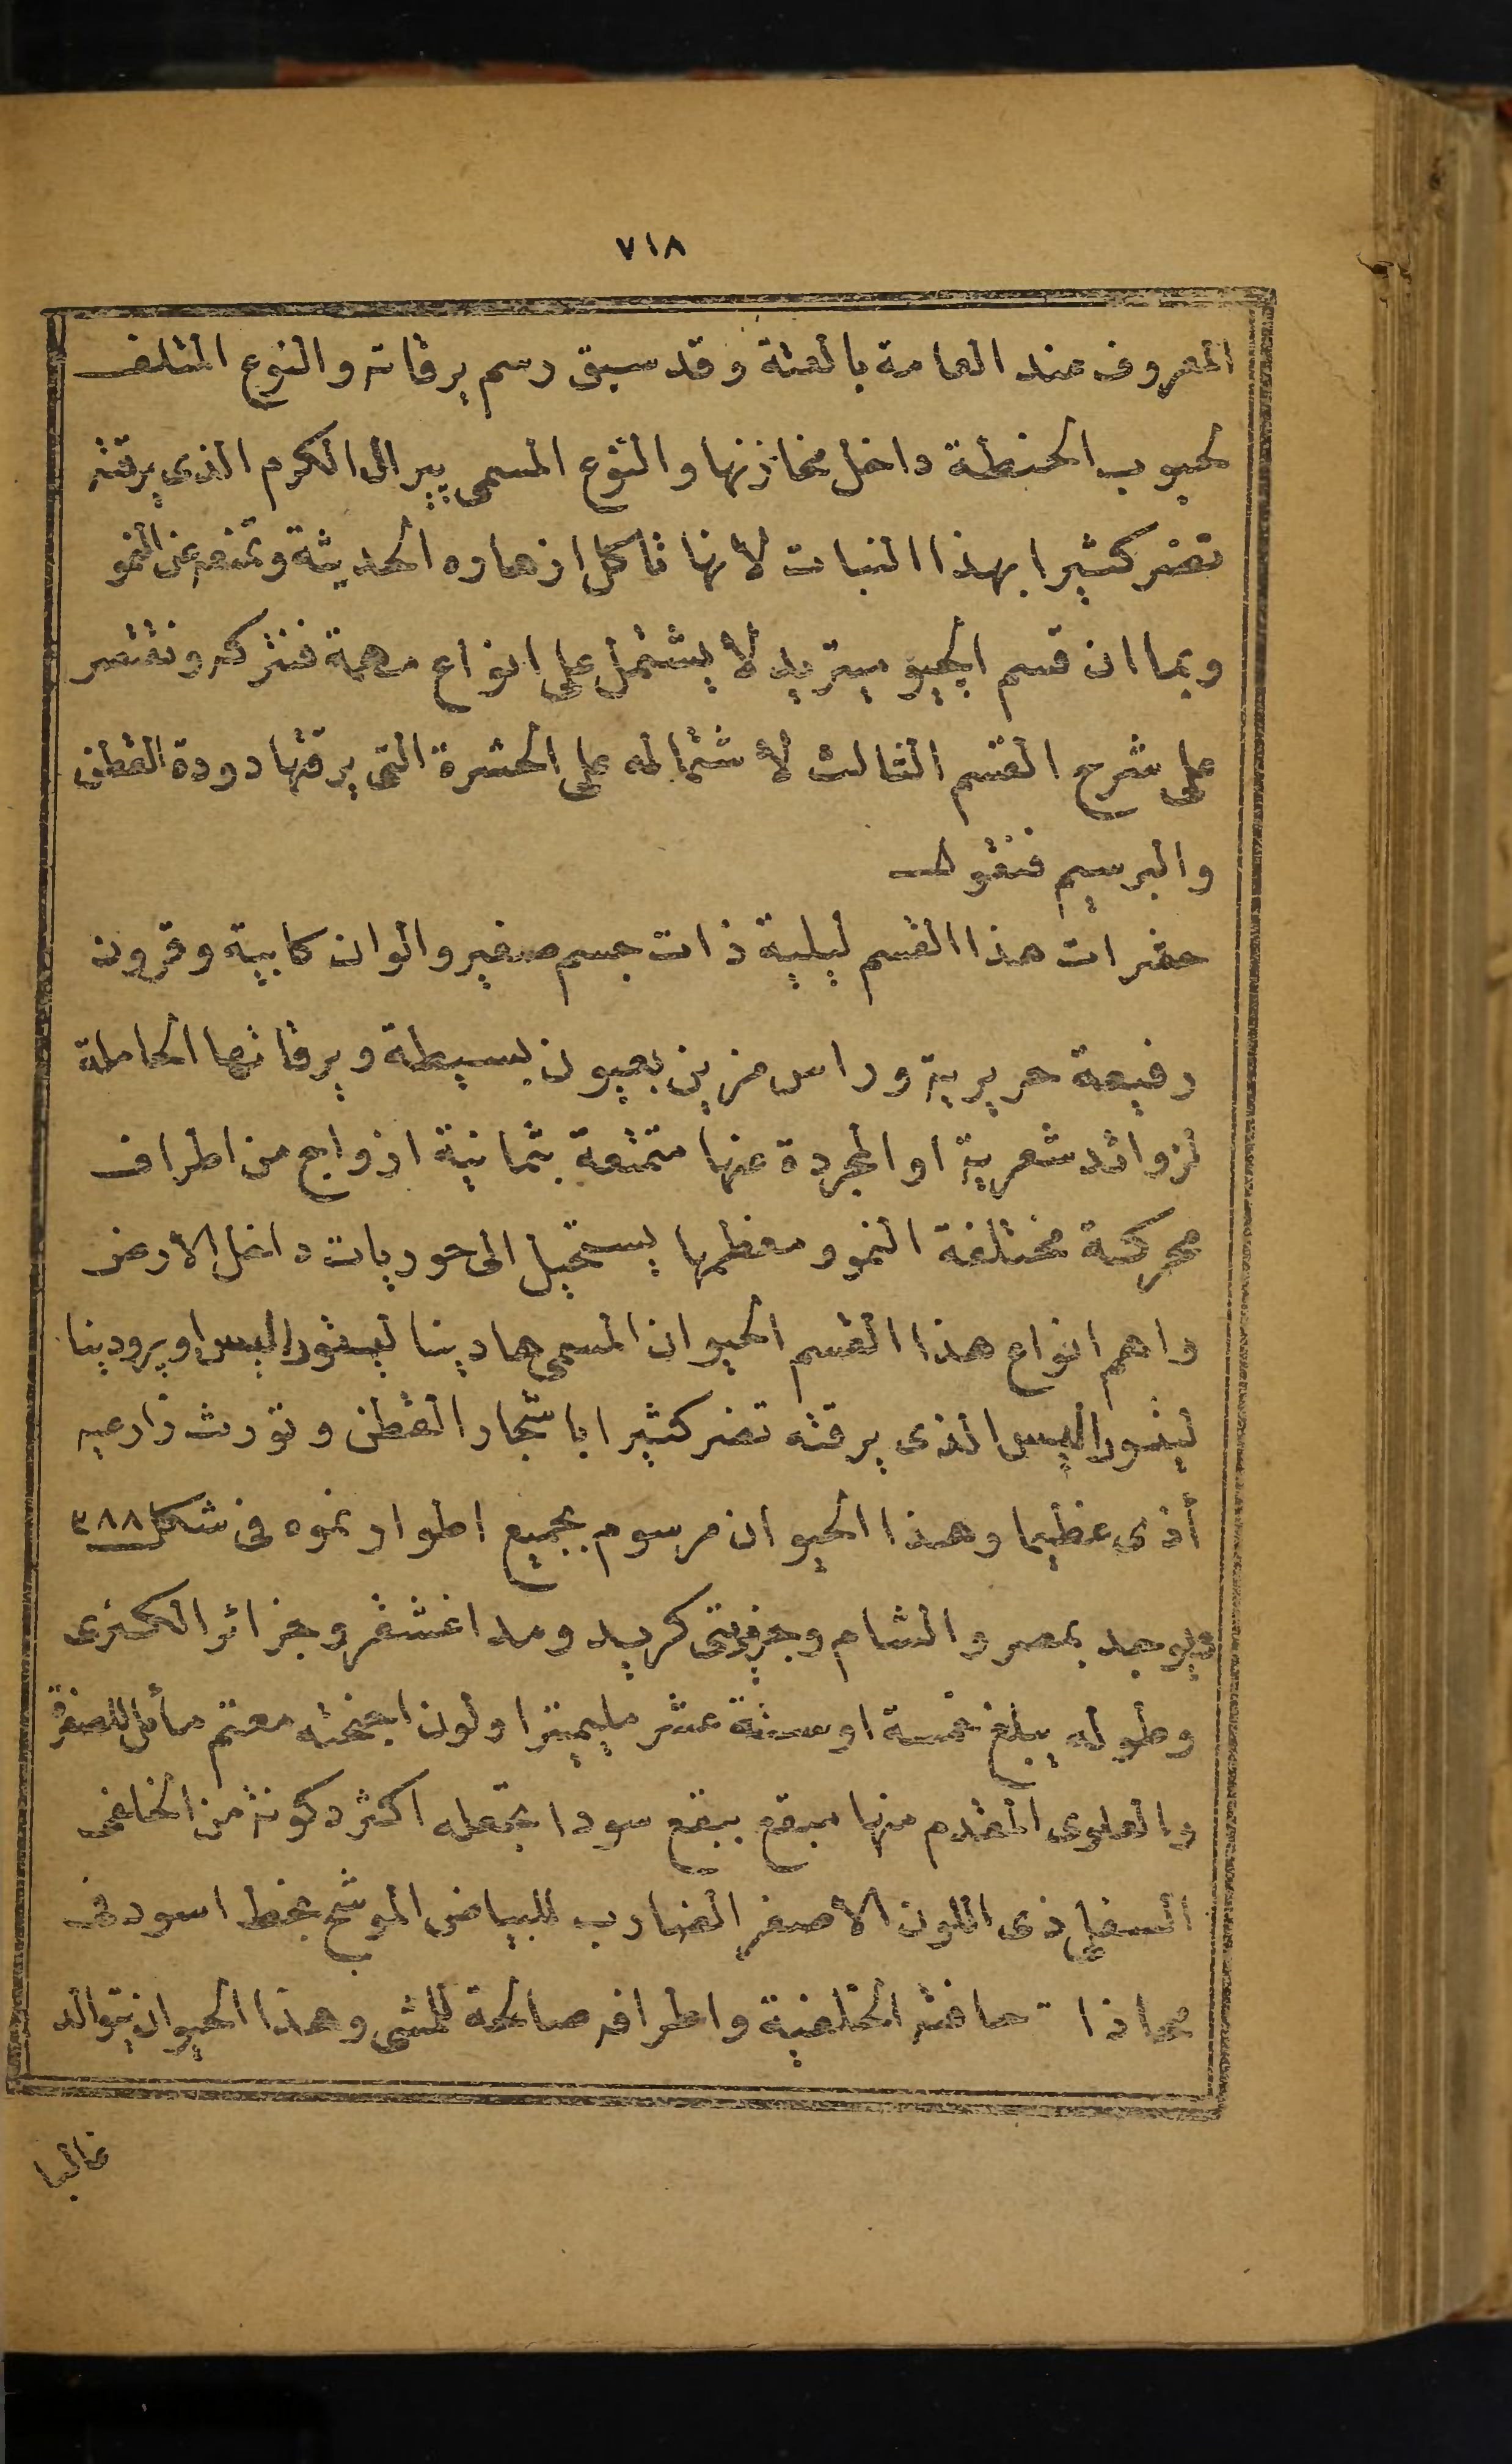 ٧١٨
المعروف عند العامة بالعثة وقد سبق رسم يرقاته والنوع المتلف
لحبوب الحنطة داخل مخازنها والنوع المسمى پيرال الكرم الذى يرقته
تضر كثيرا بهذا النبات لانها تاكل ازهاره الحديثة وتمنعه عن النمو
وبما ان قسم الجيوميتريد لا يشتمل على انواع مهمة فنتركه ونقتصر
على شرح القسم الثالث لاشتماله على الحشرة التى يرقتها دودة القطن
والبرسيم فنقول
حشرات هذا القسم ليلية ذات جسم صغير والوان كابية وقرون
رفيعة حريرية وراس مزين بعيون بسيطة ويرقاتها الحاملة
لزوائد شعرية او المجردة عنها متمتعة بثمانية ازواج من اطراف
محركة مختلفة النمو ومعظمها يستحيل الى حوريات داخل الارض
واهم انواع هذا القسم الحيوان المسمى هادينا ليتوراليس او پرودينا
ليتوراليس الذى يرقته تضر كثيرا باشجار القطن وتورث زارعيه
أذى عظيما وهذا الحيوان مرسوم بجميع اطوار نموه فى شكل ٣٨٨
ويوجد بمصر والشام وجزيرتى كريد ومداغشقر وجزائر الكنرى
وطوله يبلغ خمسة او ستة عشر مليمترا ولون اجنحته معتم مائل للصفرة
والعلوى المقدم منها مبقع ببقع سودا تجعله اكثر دكونة من الخلفى
السفلى ذى اللون الاصفر الضارب للبياض الموشح بخط اسود فى
محاذاة حافته الخلفية واطرافه صالحة للمشى وهذا الحيوان يتوالد
غالبا